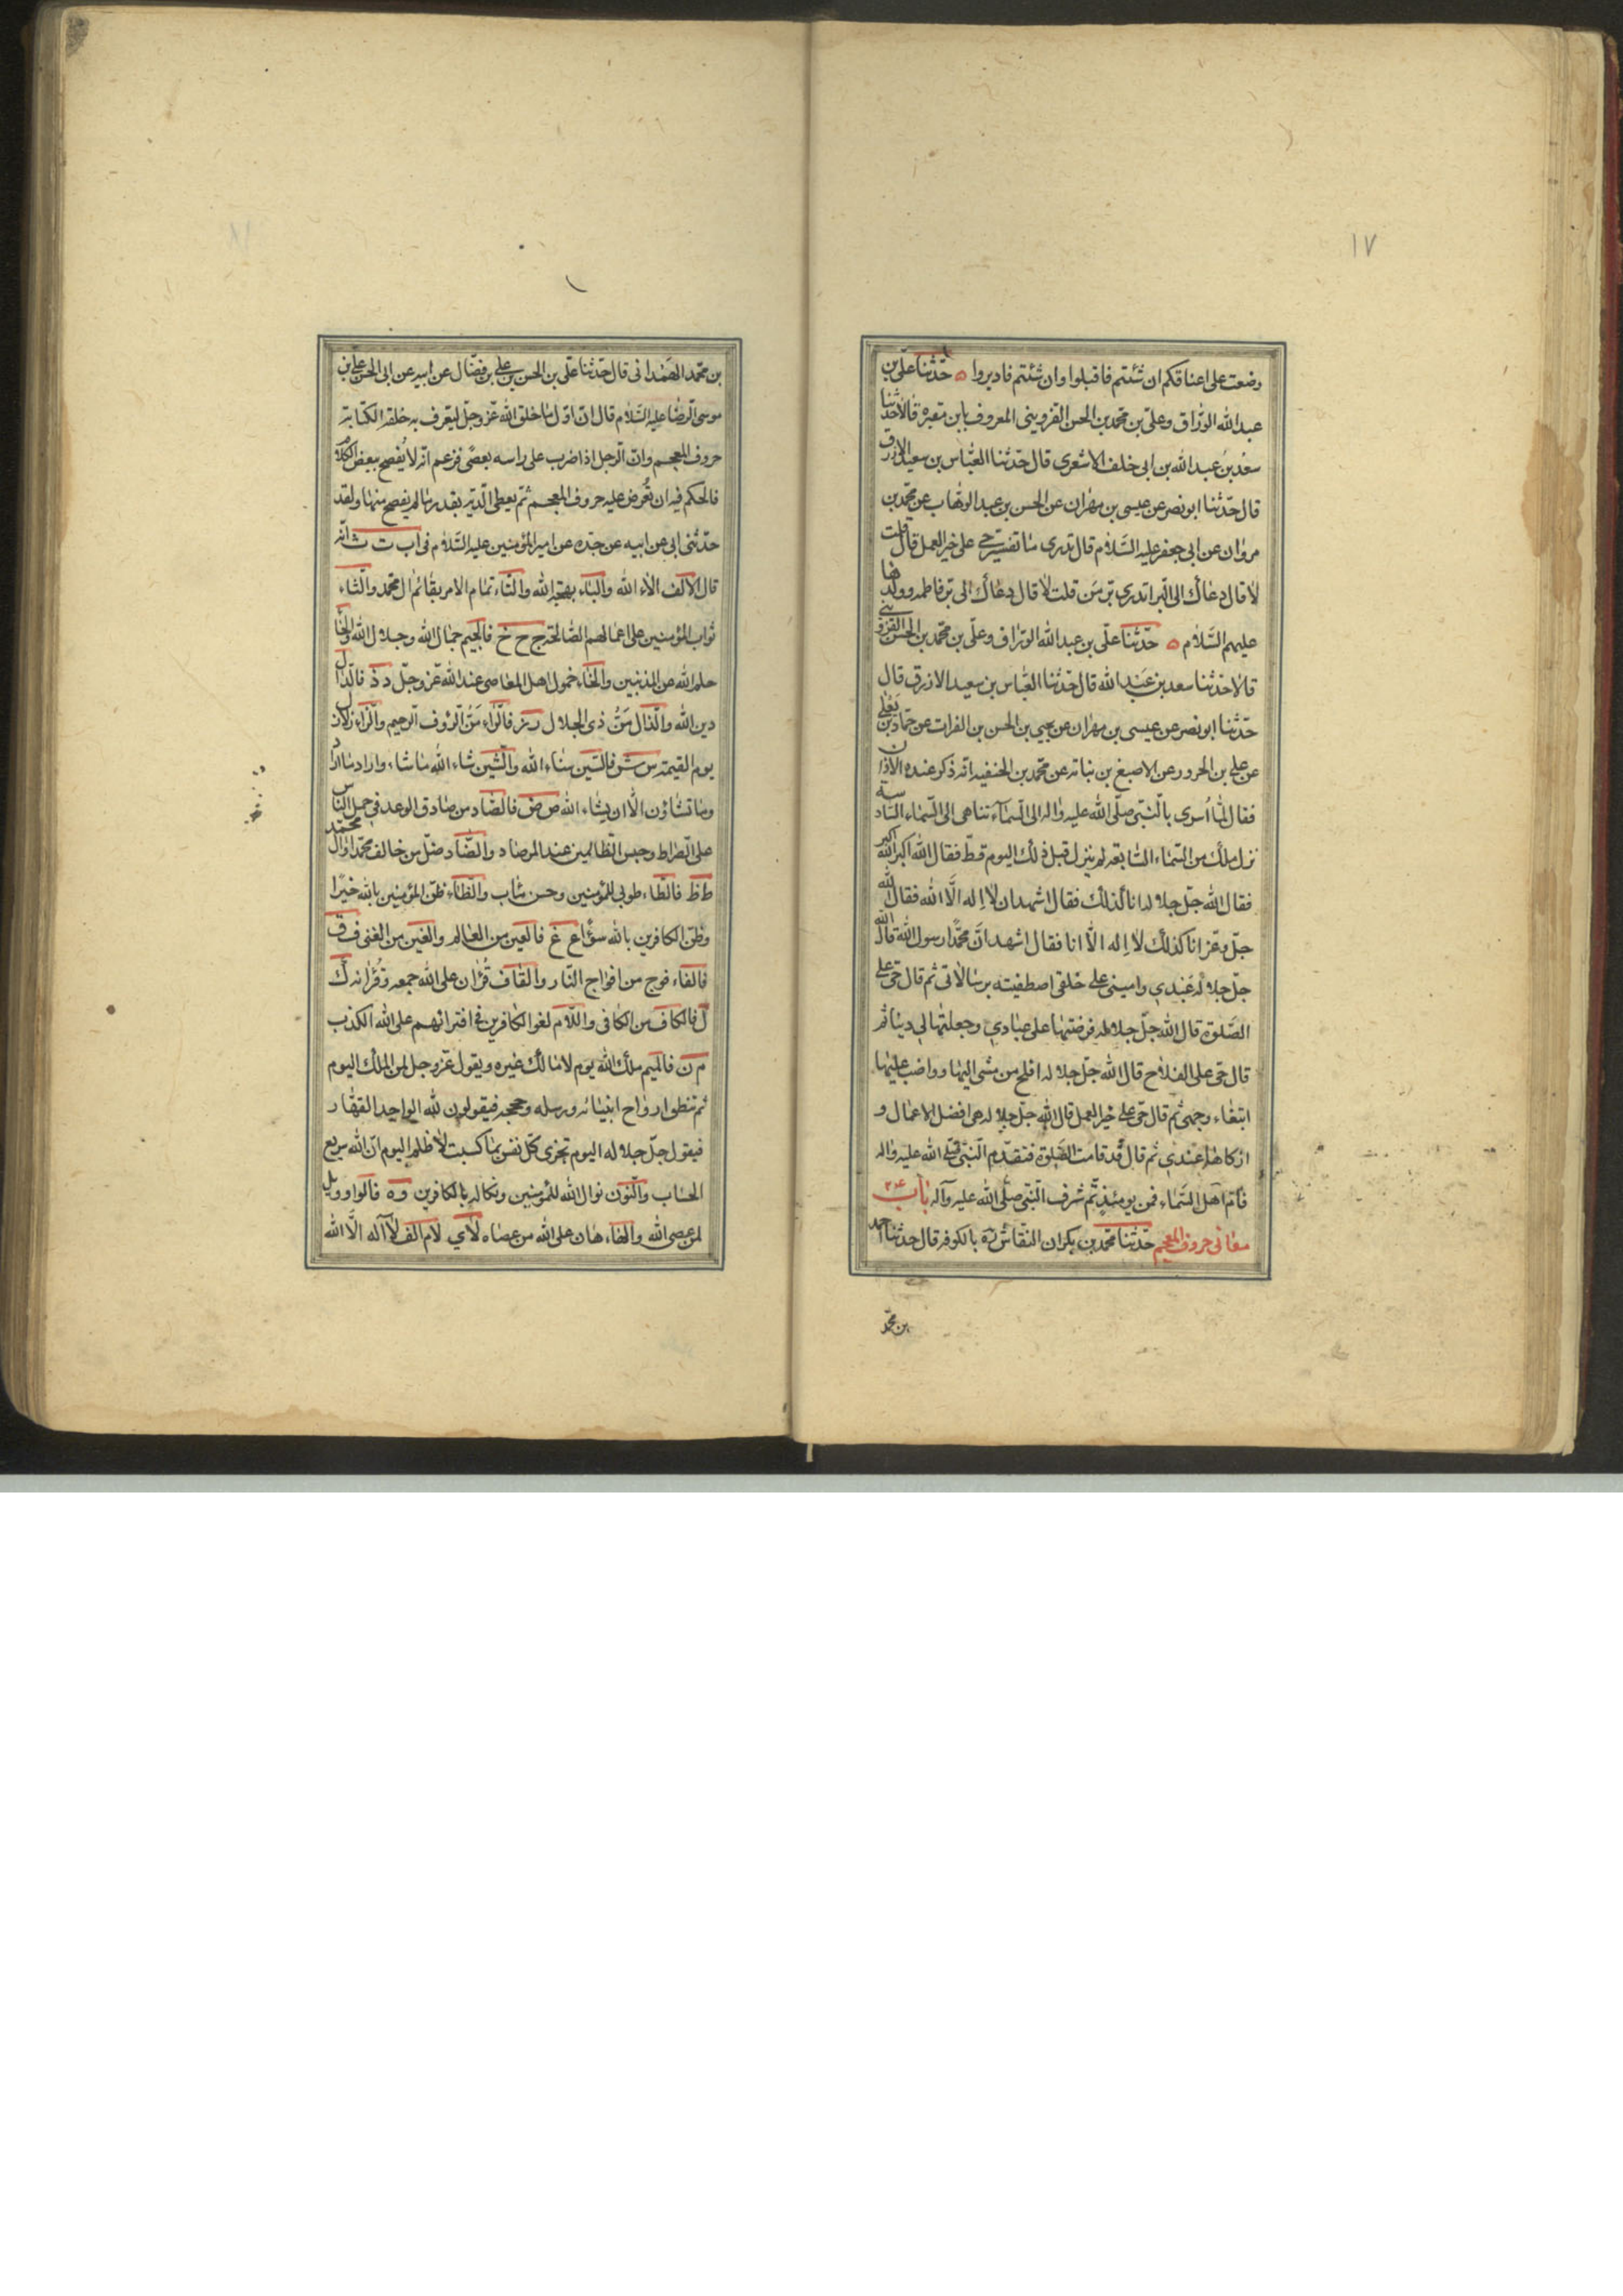 ١٧
وضعت على اعناقكم ان شئتم فاقبلوا وان شئتم فاديروا ه حدّثنا علّى بن
عبد الله الورّاق وعلىّ بن محمّد بن الحسن القزوينى المعروف بابن مقبره قالا حدّثنا
سعد بن عبد الله بن ابى خلف الاشعرى قال حدّثنا العبّاس بن سعيد الازرق
قال حدّثنا ابو نصر عن عيسى بن مهران عن الحسن بن عبد الوهّاب عن محمّد بن
مروان عن ابى جعفر عليه السّلام قال تدرى ما تفسير حىّ على خير العمل قال قلت
لا قال دعاك الى البرّ اتدرى برّ مَن قلت لا قال دعاك الى برّ فاطمه وولدها
عليهم السّلام ه حدّثنا علّى بن عبد الله الورّاق وعلّى بن محمّد بن الحسن القزوينى
قالا حدثنا سعد بن عبد الله قال حدّثنا العبّاس بن سعيد الازرق قال
حدّثنا ابو نصر عن عيسى بن مهران عن يحيى بن الحسن بن الفرات عن حمّاد بن يعلى
عن على بن الحزور عن الاصبغ بن نباته عن محمّد بن الحنفيه انّه ذكر عنده الاذان
فقال لمّا اُسرى بالنّبىّ صلّى الله عليه واله الى السّماء تناهى الى السّماء السّادسة
نزل ملك من السّماء السّابعه لم ينزل قبل ذلك اليوم قطّ فقال الله اكبر الله اكبر
فقال الله جلّ جلاله انا كذلك فقال اشهد ان لا اِله الّا الله فقال الله
جلّ وعزّ انا كذلك لا اِله الّا انا فقال اشهد انّ محمّدًا رسول الله قال الله
جلّ جلاله عَبْدِي واميني على خلقى اصطفيته برسالاتى ثم قال حىّ على
الصّلوة قال الله جلّ جلاله فرضتها على عبادي وجعلتها لى دينا ثم
قال حىّ على الفلاح قال الله جلّ جلاله افلح من مشى اليها وواضب عليها
ابتغاء وجهى ثم قال حىّ على خير العمل قال الله جلّ جلاله هى افضل الاعمال و
ازكاها عندي ثم قال قد قامت الصّلوة فتقدّم النّبىّ صلّى الله عليه واله
فامّ اهل السّماء فمن يومئذٍ تمّ شرف النّبىّ صلّى الله عليه وآله باب
معانى حروف المعجم حدّثنا محمّد بن بكران النقّاش ره بالكوفه قال حدثنا احمد
بن محمّد
بن محمّد الهَمْدانى قال حدّثنا علّى بن الحسن بن على بن فضّال عن ابيه عن ابى الحسن على بن
موسى الرّضا عليه السّلام قال انّ اوّل ما خلق الله عزّ وجلّ ليعرف به خلقه الكتابة
حروف المعجم وانّ الرّجل اذا ضرب على راسه بعصًى فزعم انّه لا يُفصح ببعض الكلام
فالحكم فيه ان تُعرض عليه حروف المعجم ثمّ يعطى الدّية بقدر ما لم يفصح منها ولقد
حدّثنى ابى عن ابيه عن جدّه عن امير المؤمنين عليه السّلام فى اب ت ث انّه
قال الالف الاء الله والباء بهجة الله والتّاء تمام الامر بقائم ال محمّد والثّاء
ثواب المؤمنين على اعمالهم الصّالحة ج ح خ فالجيم جمال الله وجلال الله والحاء
حلم الله عن المذنبين والخاء خمول اهل المعاصى عند الله عزّ وجلّ د ذ فالدّال
دين الله والذّال مَنُّ ذى الجلال ر ز فالرّاء مَنُّ الرّؤف الرّحيم والزّاء زلازل
يوم القيمة س ش فالسّين سناء الله والشّين شاء الله ما شاء واراد ما اراد
وما تشاؤن الّا ان يشاء الله ص ض فالصّاد من صادق الوعد فى حمل النّاس
على الصّراط وحبس الظّالمين عند المرصاد والضّاد ضلّ من خالف محمّدا وال محمّد
ط ظ فالطّاء طوبى للمؤمنين وحسن مئاب والظّاء ظنّ المؤمنين بالله خيرًا
وظنّ الكافرين بالله سوًا ع غ فالعين من العالم والغين من الغنى ف ق
فالفاء فوج من افواج النّار والقاف قُرْان على الله جمعه وقُرْانه ك
ل فالكاف من الكافى واللّام لغو الكافرين فى افترائهم على الله الكذب
م ن فالميم ملك الله يوم لا مالك غيره ويقول عزّ وجل لمن الملك اليوم
ثم تنطق ارواح انبيائه ورسله وحججه فيقولون لله الواحد القهّار
فيقول جلّ جلاله اليوم تجزى كلّ نفس بما كسبت لا ظلم اليوم انّ الله سريع
الحساب والنّون نوال الله للمؤمنين ونكاله بالكافرين و ه فالواو ويل
لمن عصى الله والهاء هان على الله من عصاه لا ي لام الف لا آله الّا الله